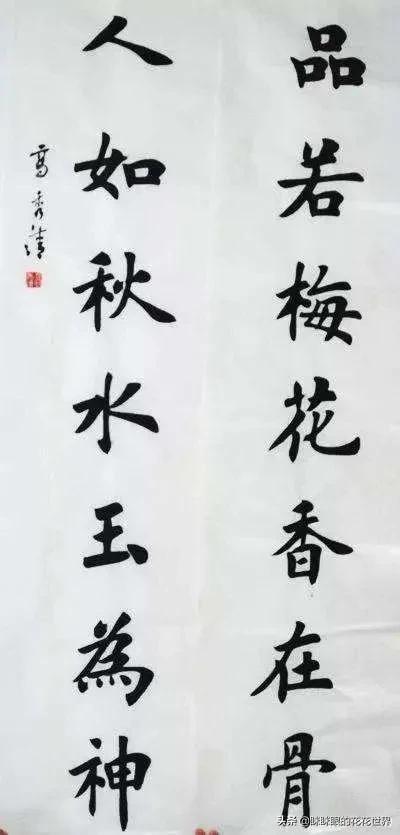 品若梅花香在骨
人如秋水玉為神
高秀清
头条@眯眯眼的花花世界